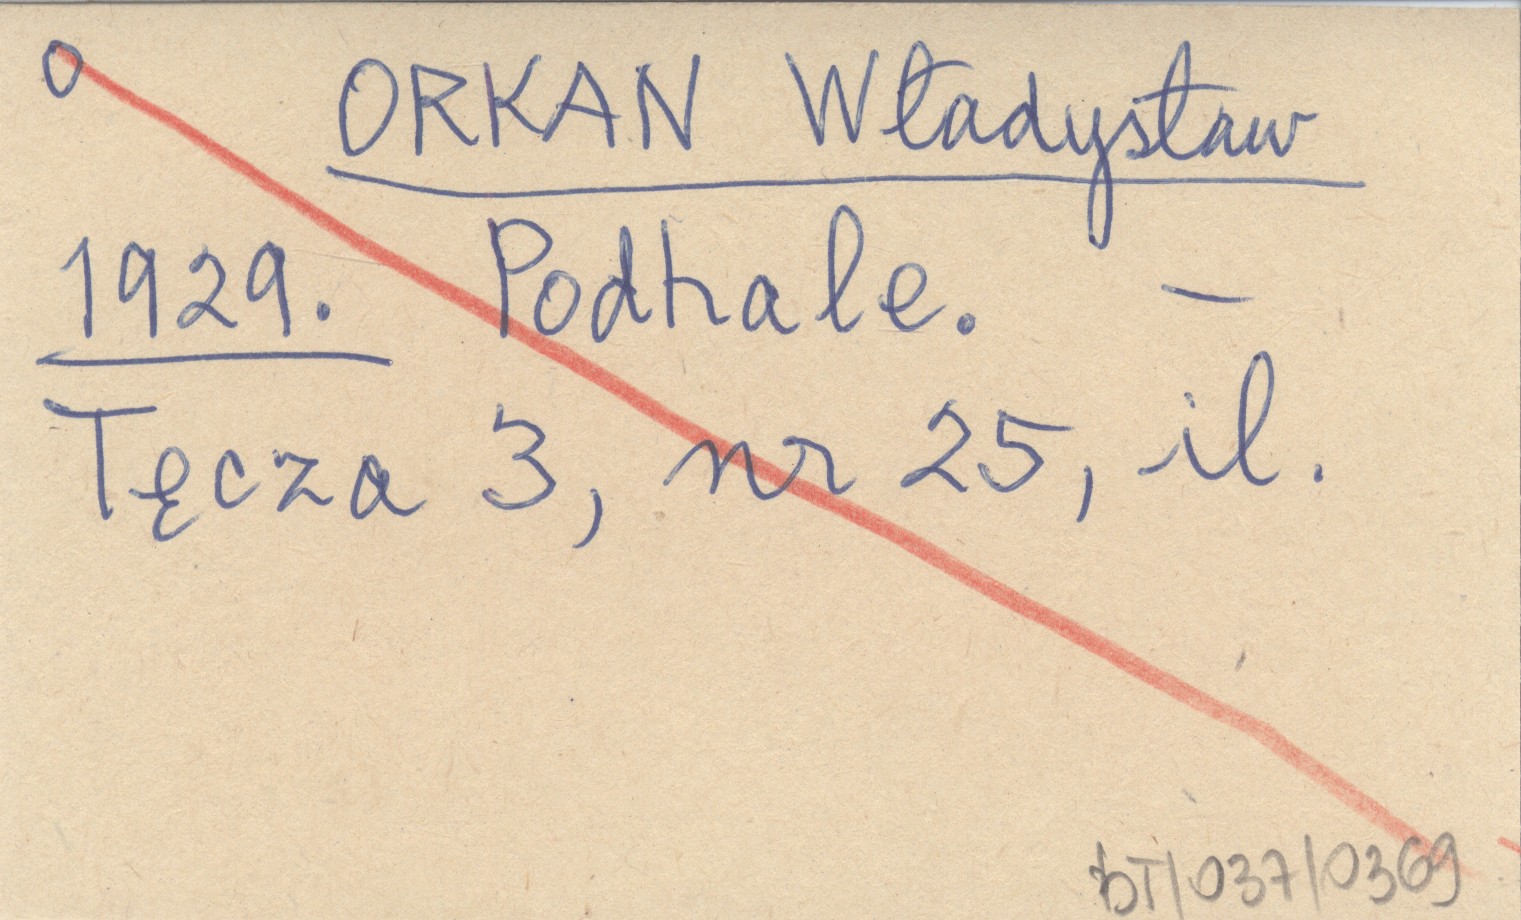 O ORKAN Władysław
1929. Podhale. —
Tęcza 3, nr 25, il.
bT/037/0369